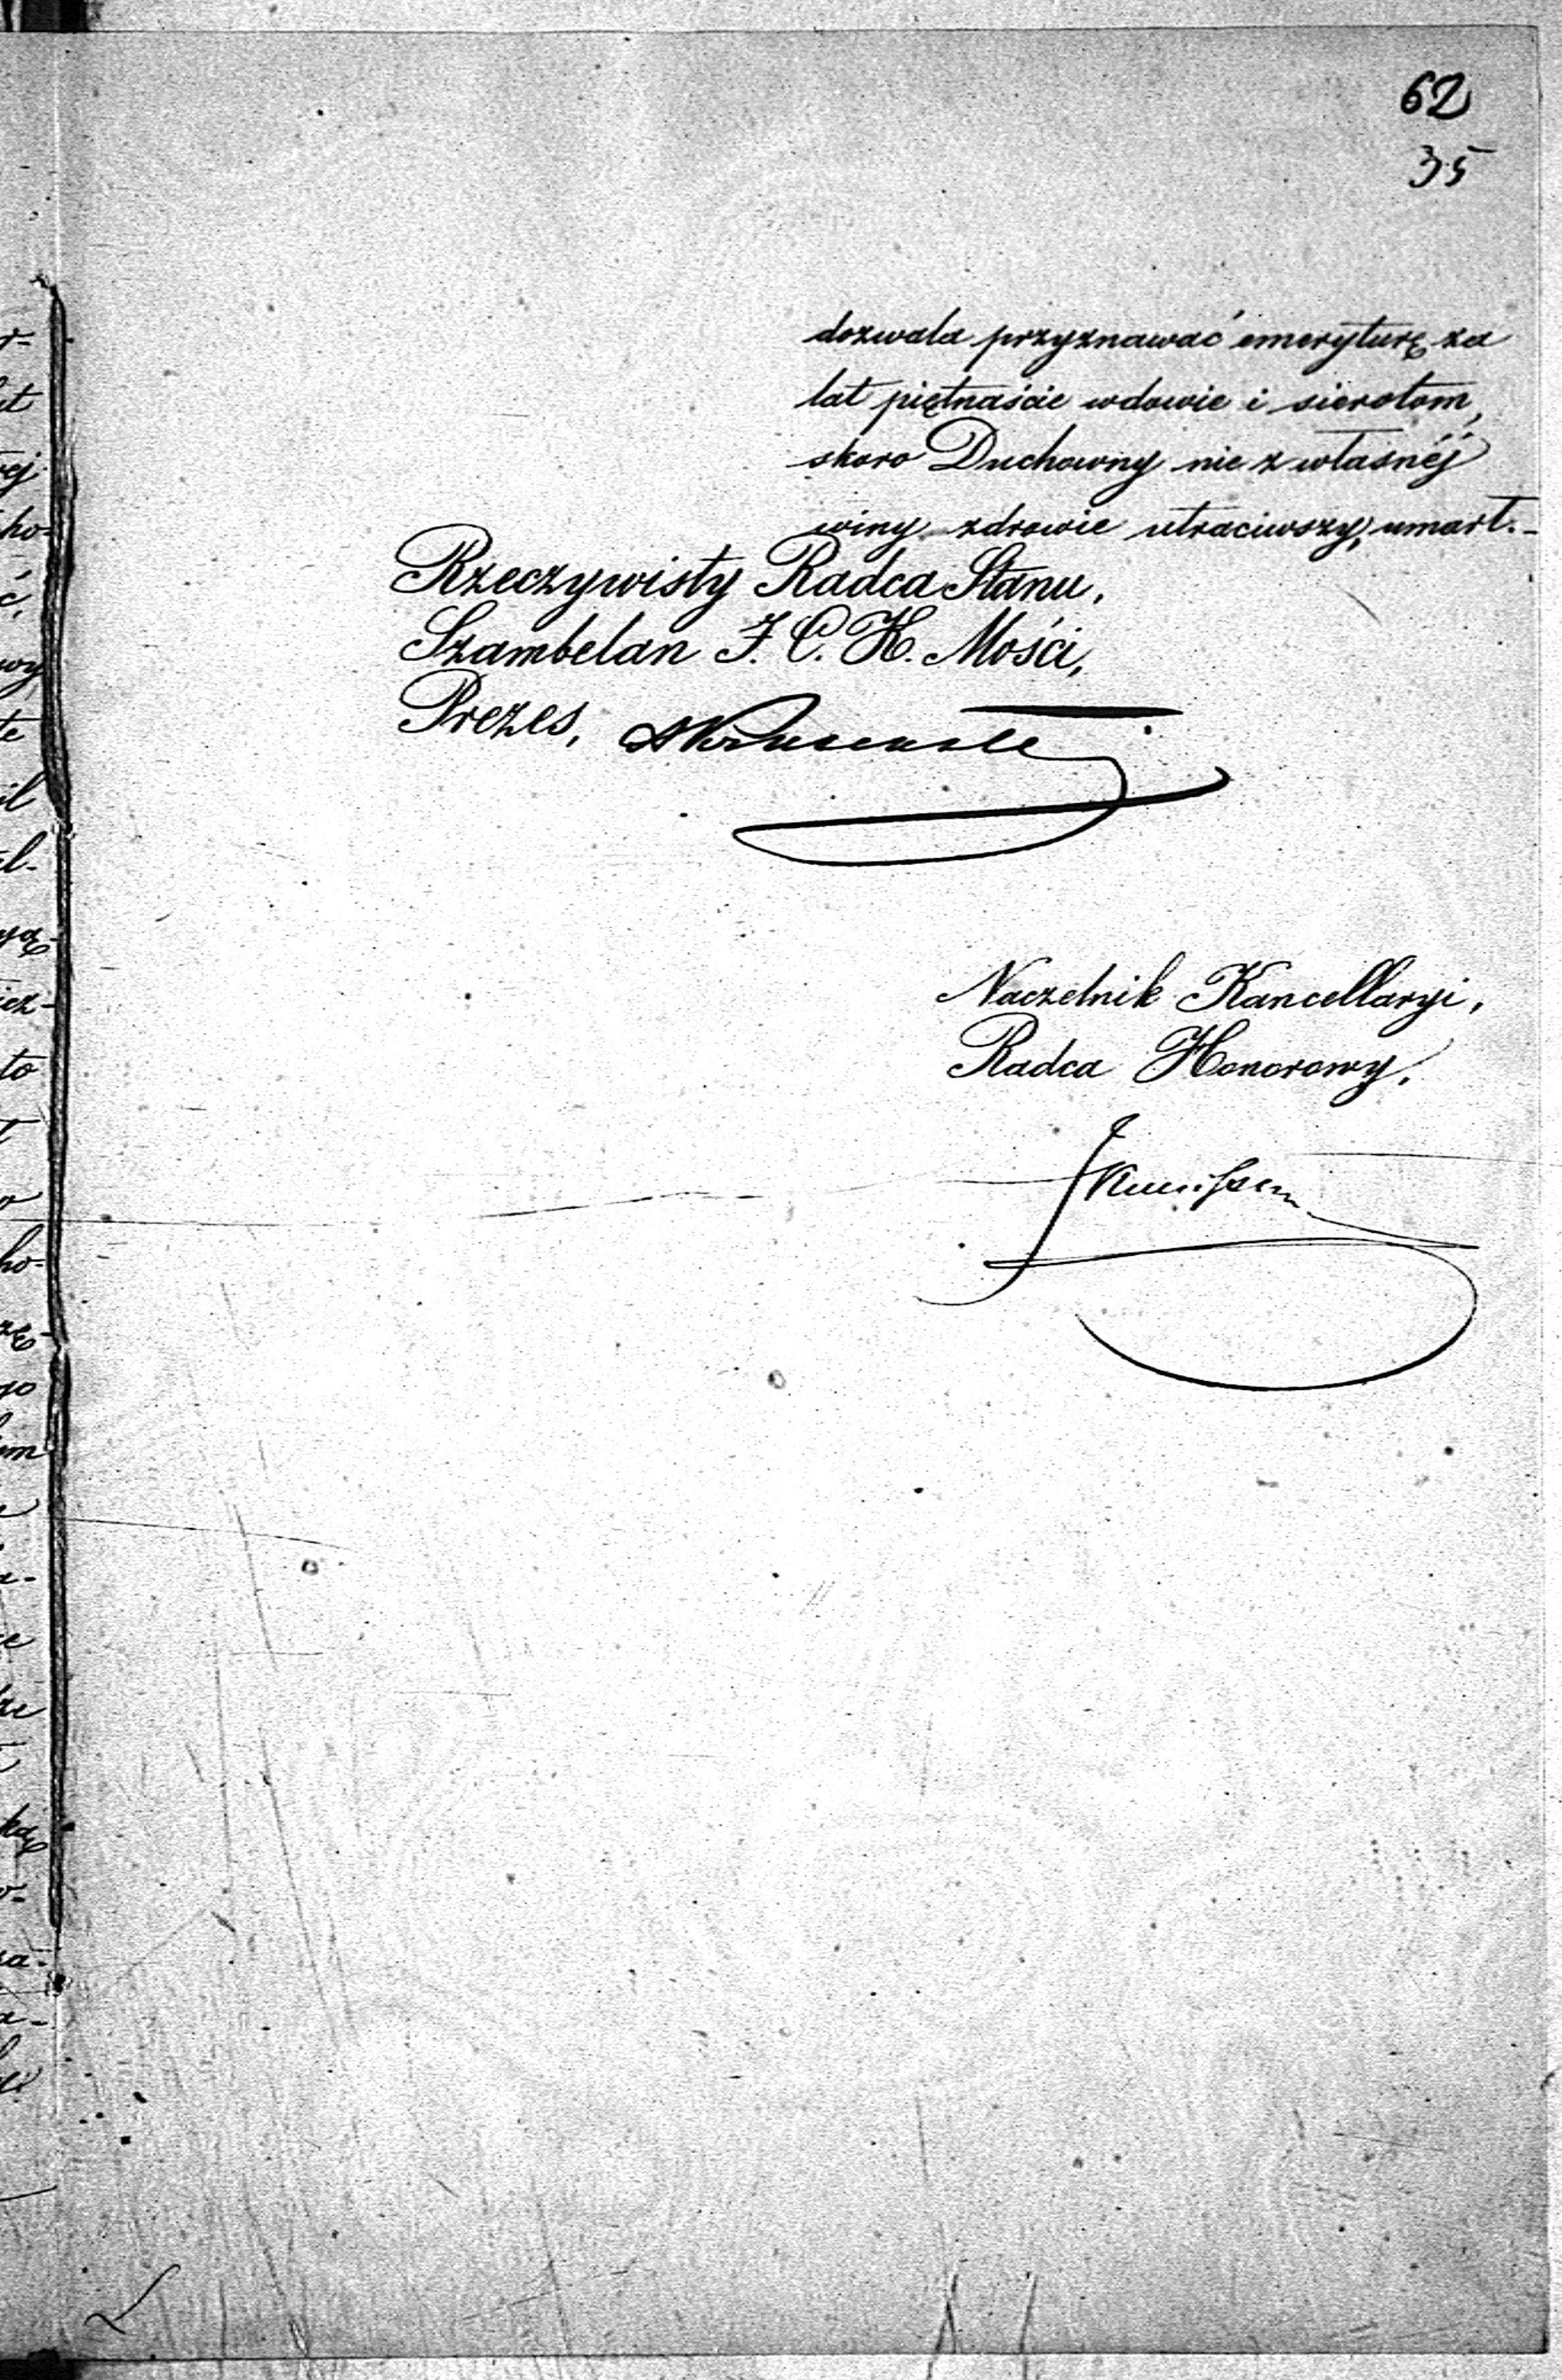 62
35
dozwala przyznawać emeryturę za
lat piętnaście wdowie i sierotom,
skoro Duchowny nie z własnéj
winy zdrowie utraciwszy, umarł.-
Rzeczywisty Radca Stanu,
Szambelan J. C. K. Mości,
Prezes,
Naczelnik Kancellaryi,
Radca Honorowy,